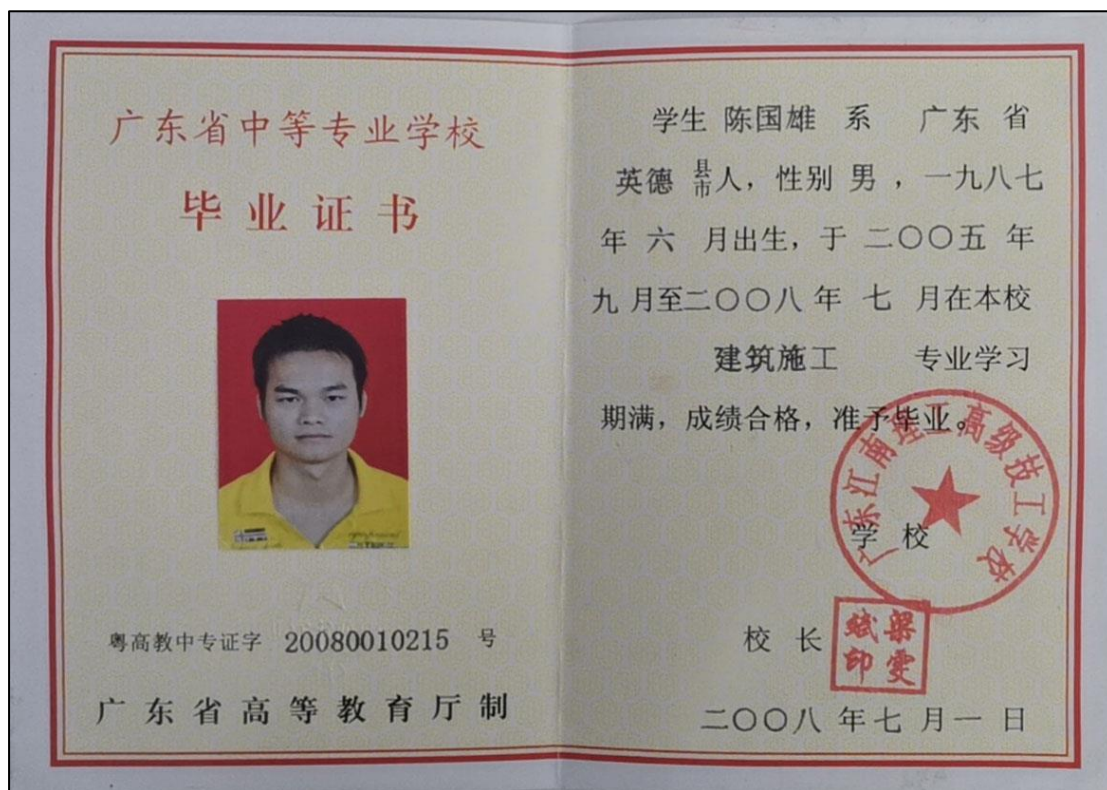 广东省中等专业学校
毕业证书
粤高教中专证字 20080010215 号
广东省高等教育厅制
学生 陈国雄 系 广东 省
英德 县市人，性别 男 ，一九八七
年 六 月出生，于 二〇〇五 年
九 月至二〇〇八 年 七 月在本校
建筑施工 专业学习
期满，成绩合格，准予毕业。
广东江南理工高级技工学校
学 校
校 长
梁雯
斌印
二〇〇八 年 七 月 一 日